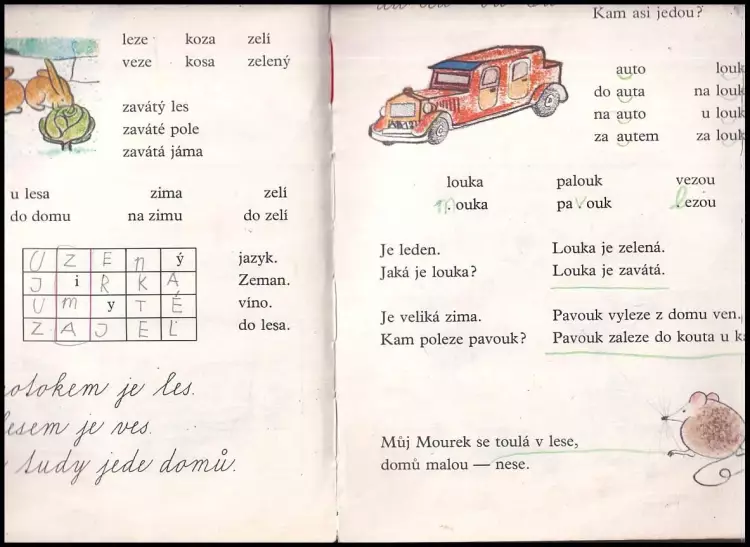 leze koza zelí
veze kosa zelený
zavátý les
zaváté pole
zavátá jáma
u lesa zima zelí
do domu na zimu do zelí
U Z E n ý jazyk.
J i R K A Zeman.
U m y T É víno.
Z A J E Ľ do lesa.
je les.
je ves.
tudy jede domů.
Kam asi jedou?
auto
do auta na
na auto u
za autem za
louka palouk vezou
mouka pavouk lezou
Je leden. Louka je zelená.
Jaká je louka? Louka je zavátá.
Je veliká zima. Pavouk vyleze z domu ven.
Kam poleze pavouk? Pavouk zaleze do kouta u
Můj Mourek se toulá v lese,
domů malou — nese.